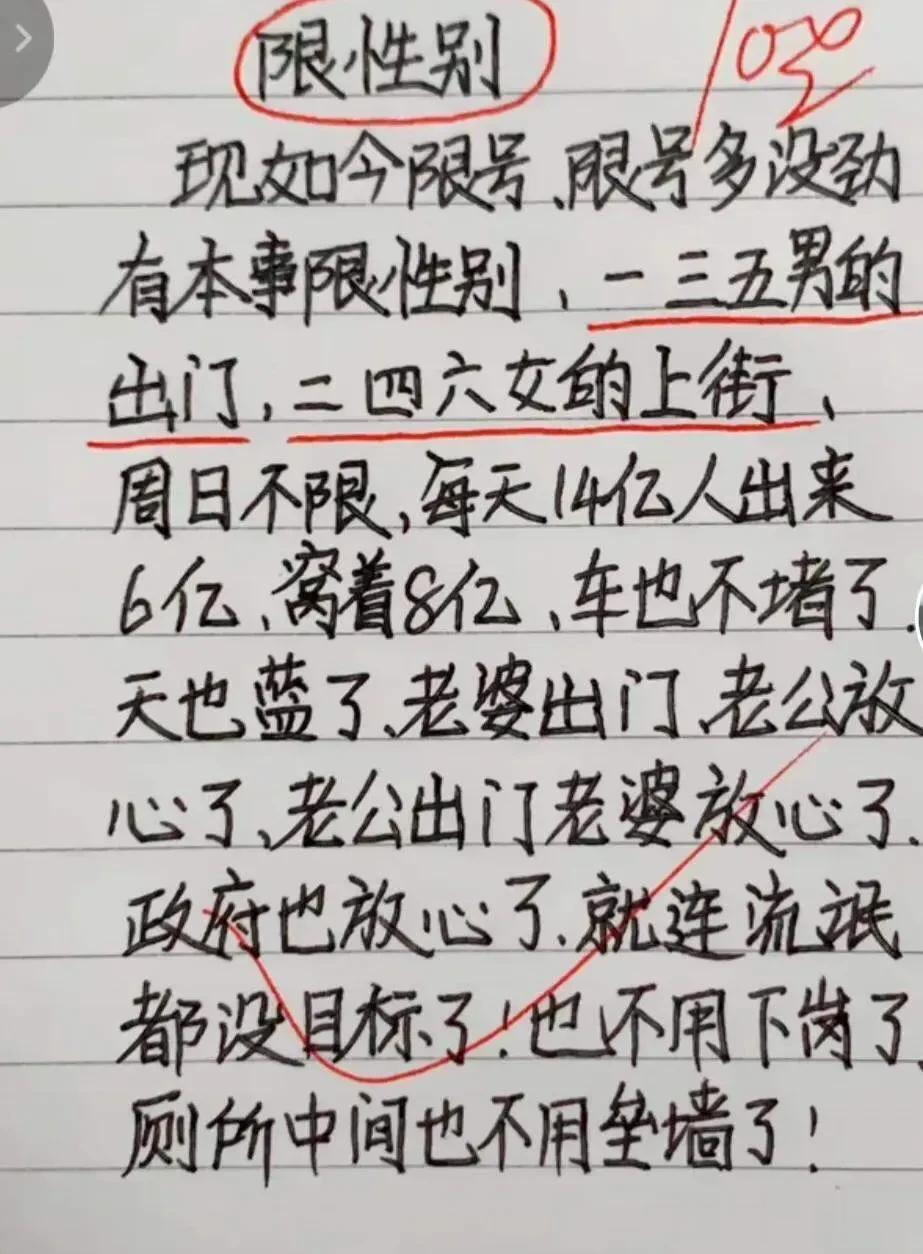 限性别 100
现如今限号、限号多没劲
有本事限性别、一三五男的
出门,二四六女的上街、
周日不限,每天14亿人出来
6亿、窝着8亿、车也不堵了.
天也蓝了、老婆出门、老公放
心了、老公出门老婆放心了.
政府也放心了.就连流氓
都没目标了!也不用下岗了.
厕所中间也不用垒墙了!